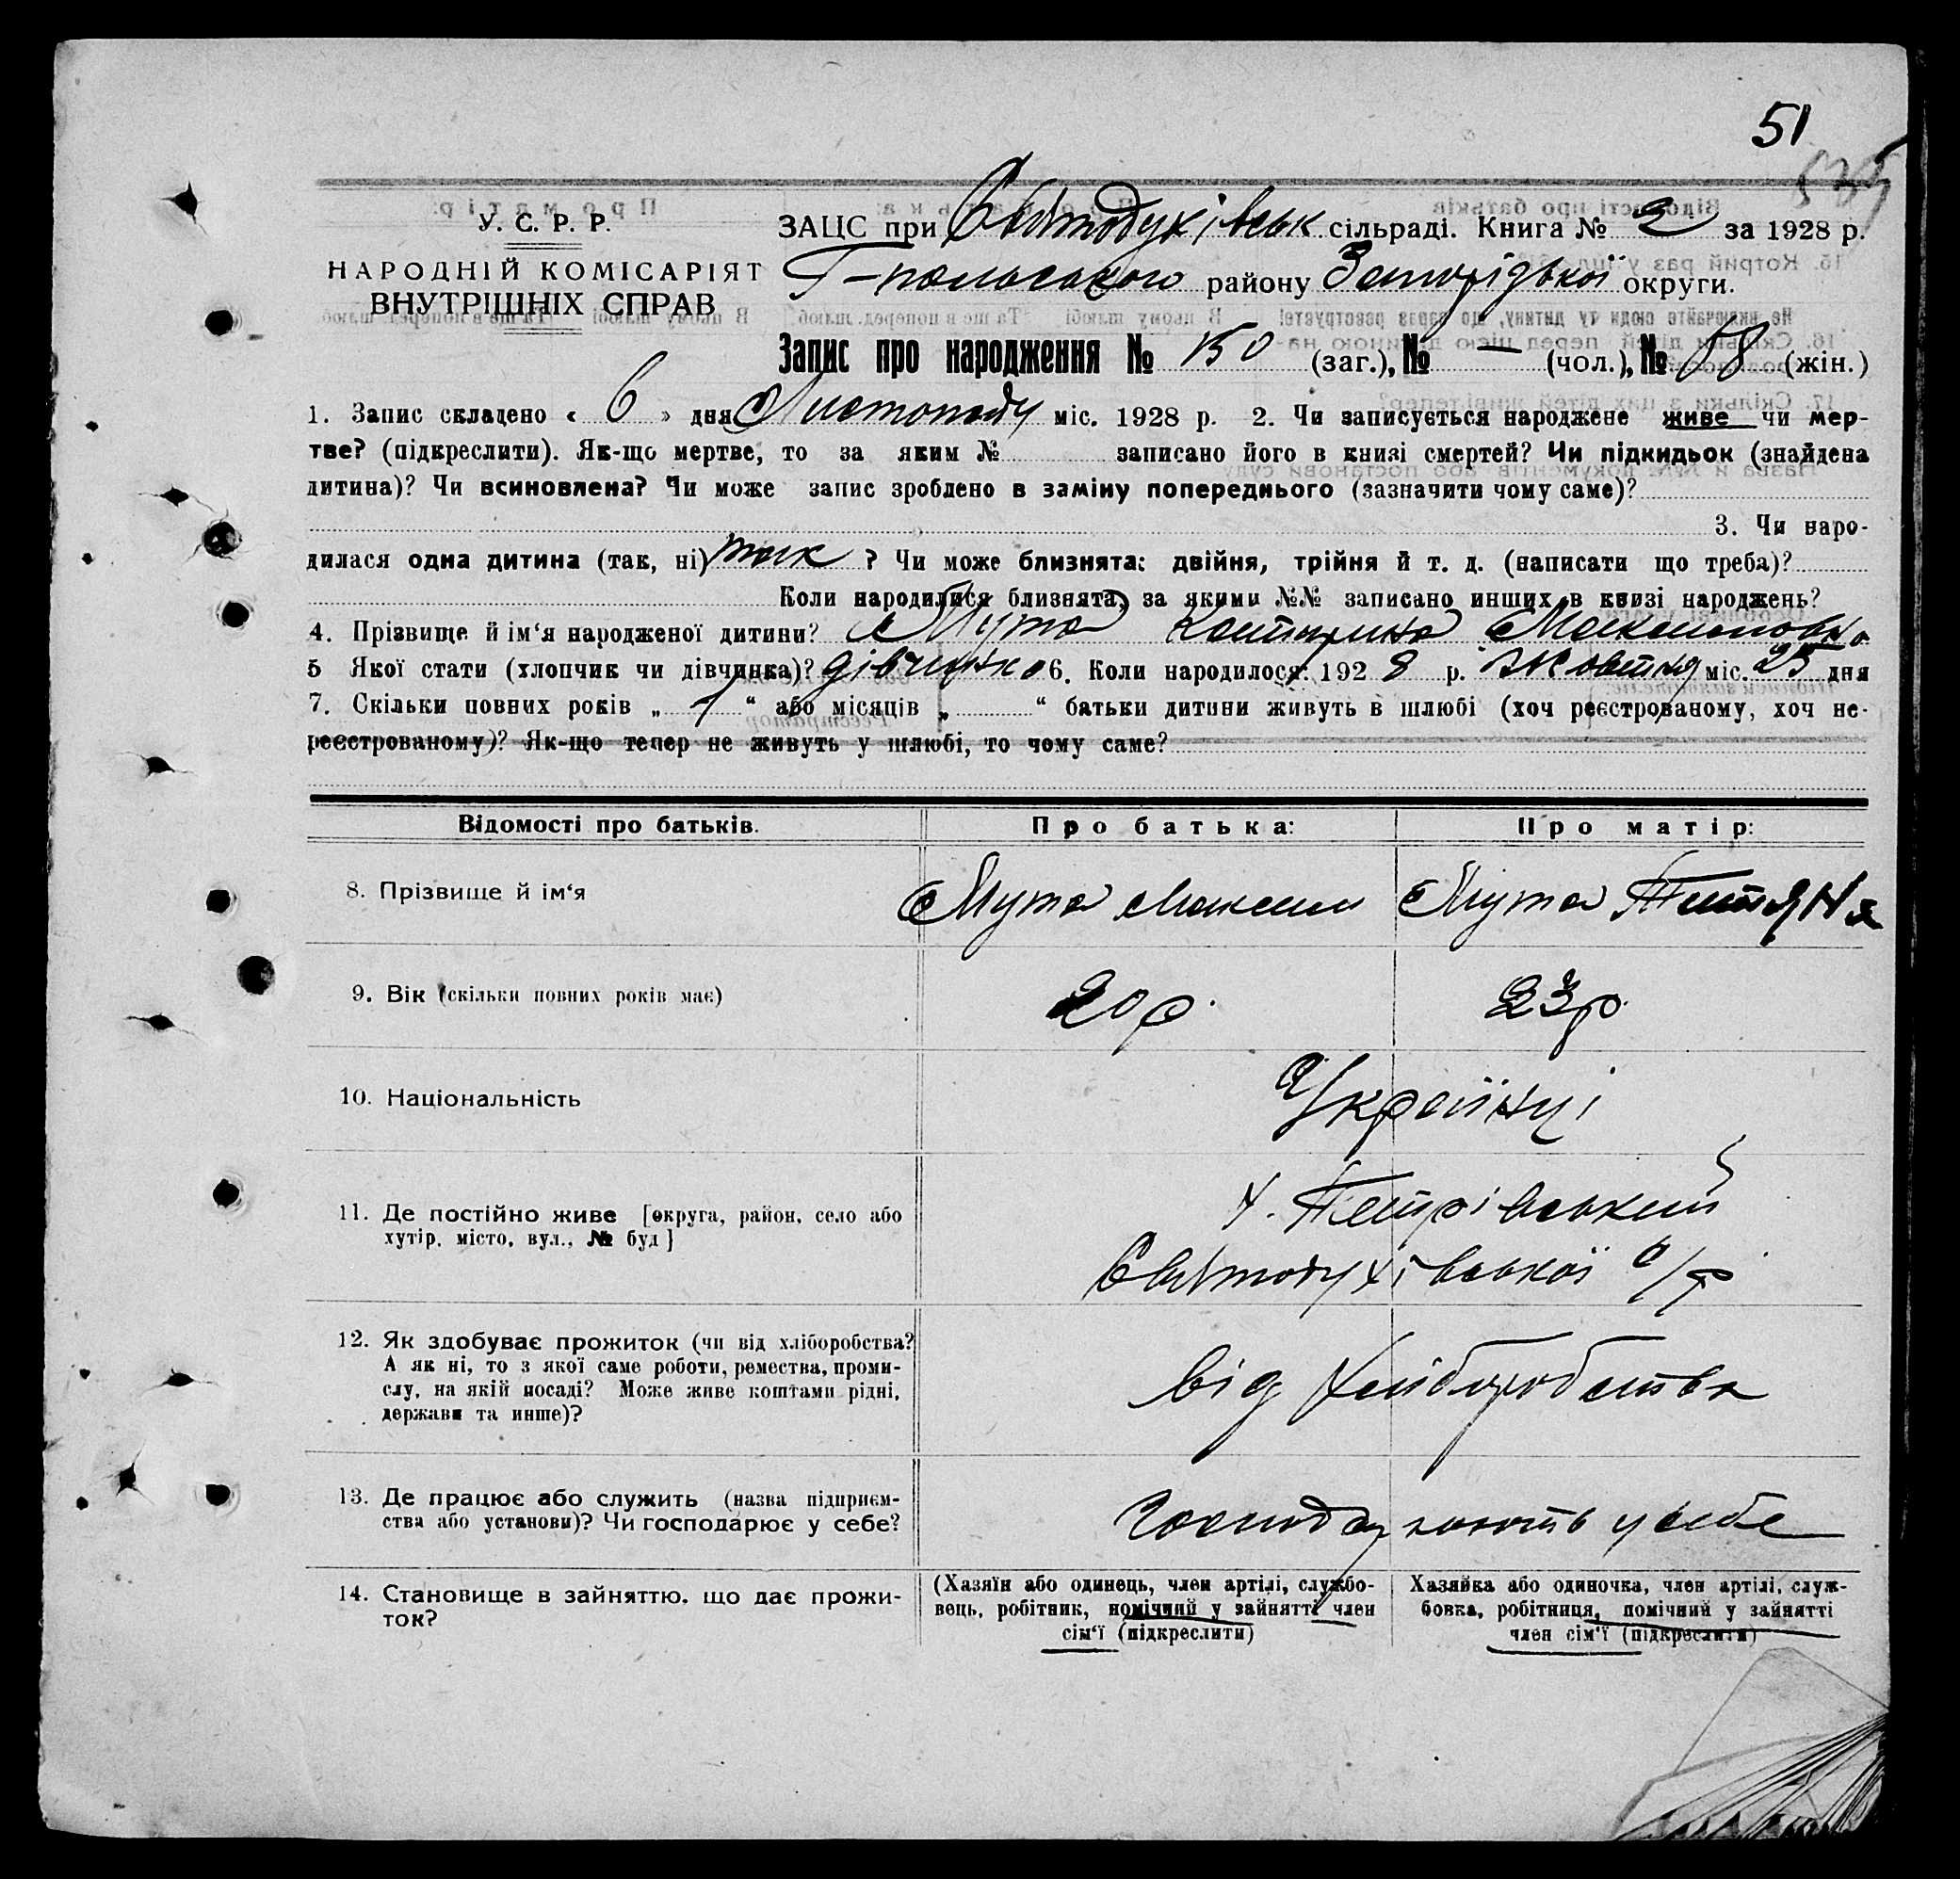 51
У. С. Р. Р.
НАРОДНІЙ КОМІСАРІЯТ
ВНУТРІШНІХ СПРАВ
ЗАЦС при Святодухівськ сільраді. Книга № 2 за 1928 р.
Г-польського району Запорізької округи.
Запис про народження № 150 (заг.), № — (чол.), № 68 (жін.)
1. Запис складено « 6 » дня Листопаду міс. 1928 р. 2. Чи записується народжене живе чи мер-
тве? (підкреслити). Як-що мертве, то за яким № записано його в книзі смертей? Чи підкидьок (знайдена
дитина)? Чи всиновлена? Чи може запис зроблено в заміну попереднього (зазначити чому саме)?
3. Чи наро-
дилася одна дитина (так, ні) так ? Чи може близнята: двійня, трійня й т. д. (написати що треба)?
Коли народилися близнята, за якими №№ записано инших в книзі народжень?
4. Прізвище й ім‘я народженої дитини? Мута Катирина Максимовна
5 Якої стати (хлопчик чи дівчинка)? дівчинка 6. Коли народилося: 192 8 р. Жовтня міс. 25 дня
7. Скільки повних років „ 1 “ або місяців „ “ батьки дитини живуть в шлюбі (хоч реєстрованому, хоч не-
реєстрованому)? Як-що тепер не живуть у шлюбі, то чому саме?
Відомості про батьків. Про батька: Про матір:
8. Прізвище й ім‘я Мута Максим Мута Титяна
9. Вік (скільки повних років має) 20 р. 23 р.
10. Національність Українці
11. Де постійно живе [округа, район, село або
хутір, місто, вул., № буд]
х. Петрівський
Святодухівської с/р
12. Як здобуває прожиток (чи від хліборобства?
А як ні, то з якої саме роботи, ремества, проми-
слу, на якій посаді? Може живе коштами рідні,
держави та инше)?
від хліборобства
13. Де працює або служить (назва підприєм-
ства або установи)? Чи господарює у себе?
Господарюють у себе
14. Становище в зайняттю, що дає прожи-
ток?
(Хазяїн або одинець, член артілі, службо-
вець, робітник, помічний у зайнятті член
сім‘ї (підкреслити)
Хазяйка або одиночка, член артілі, служ-
бовка, робітниця, помічний у зайнятті
член сім‘ї (підкреслити)